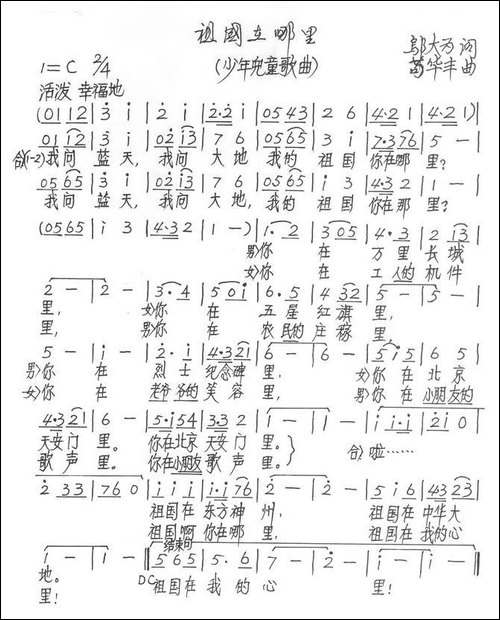 祖國在哪里
(少年兒童歌曲)
鄔大为 词
葛华丰 曲
1=C 2/4
活泼 幸福地
(01 12 | 3 i | 2 i | 2·2 i | 05 43 | 2 6 | 4·2 1 | 4·2 1)|
01 12 | 3 i | 02 13 | 7 6 | 05 65 | 3 3 | 7·3 76 | 5 — |
合(1-2)我问 蓝天, 我问 大地 我的 祖国 你在哪 里?
05 65 | 3 i | 02 13 | 7 6 | 05 65 | i 3 | 4·3 2 | 1 — |
我问 蓝天, 我问 大地, 我的 祖国 你在那 里?
(05 65 | i 3 | 4·3 2 | 1 —) | 1· 2 | 3 05 | 4· 3 | 2 13 |
男)你 在 万 里 长 城
女)你 在 工 人的 机 件
2 — | 2 — | 3· 4 | 5 0 i | 6· 5 | 4 32 | 5 — | 5 — |
里, 女)你 在 五 星 红 旗 里,
里, 男)你 在 农 民的 庄 稼 里,
5 — | i — | 2· i | 4·3 21 | 6 — | 6 — | 5 i 5 | 6 5 |
男)你 在 烈 士 纪念碑 里, 女)你 在 北 京
女)你 在 老爷爷的 笑 容 里, 男)你 在 小朋友的
4·3 21 | 6 — | 5·i 54 | 33 2 | 1 — | 1 — | i i·i | 2i 0 |
天安门 里。 你在北京 天安门 里。 合)啦……
歌 声 里。 你在小朋友 歌 声 里。
2 33 | 76 0 | i i i | i·i 76 | 2 — | 2 — | 5 i 6 | 43 23 |
祖国在 东方神 州, 祖国在 中华大
祖国啊 你在哪 里, 祖国在 我的心
结束句
1 — | 1 — ‖ 5 65 | 5· 6 | 7 — | 2 — | i — | i — |
地。 D.C 祖国在 我 的 心 里!
里!